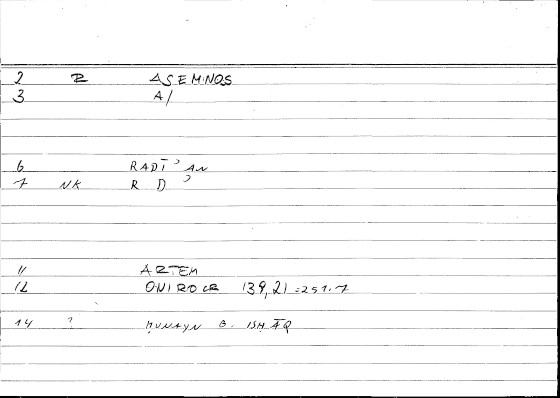 2 R ASEMNOS
3 A/
6 RADĪʾ AN
7 NK R D ʾ
11 ARTEM
12 ONIROCR 139,21 = 251.7
14 ? ḤUNAYN B. ISḤĀQ